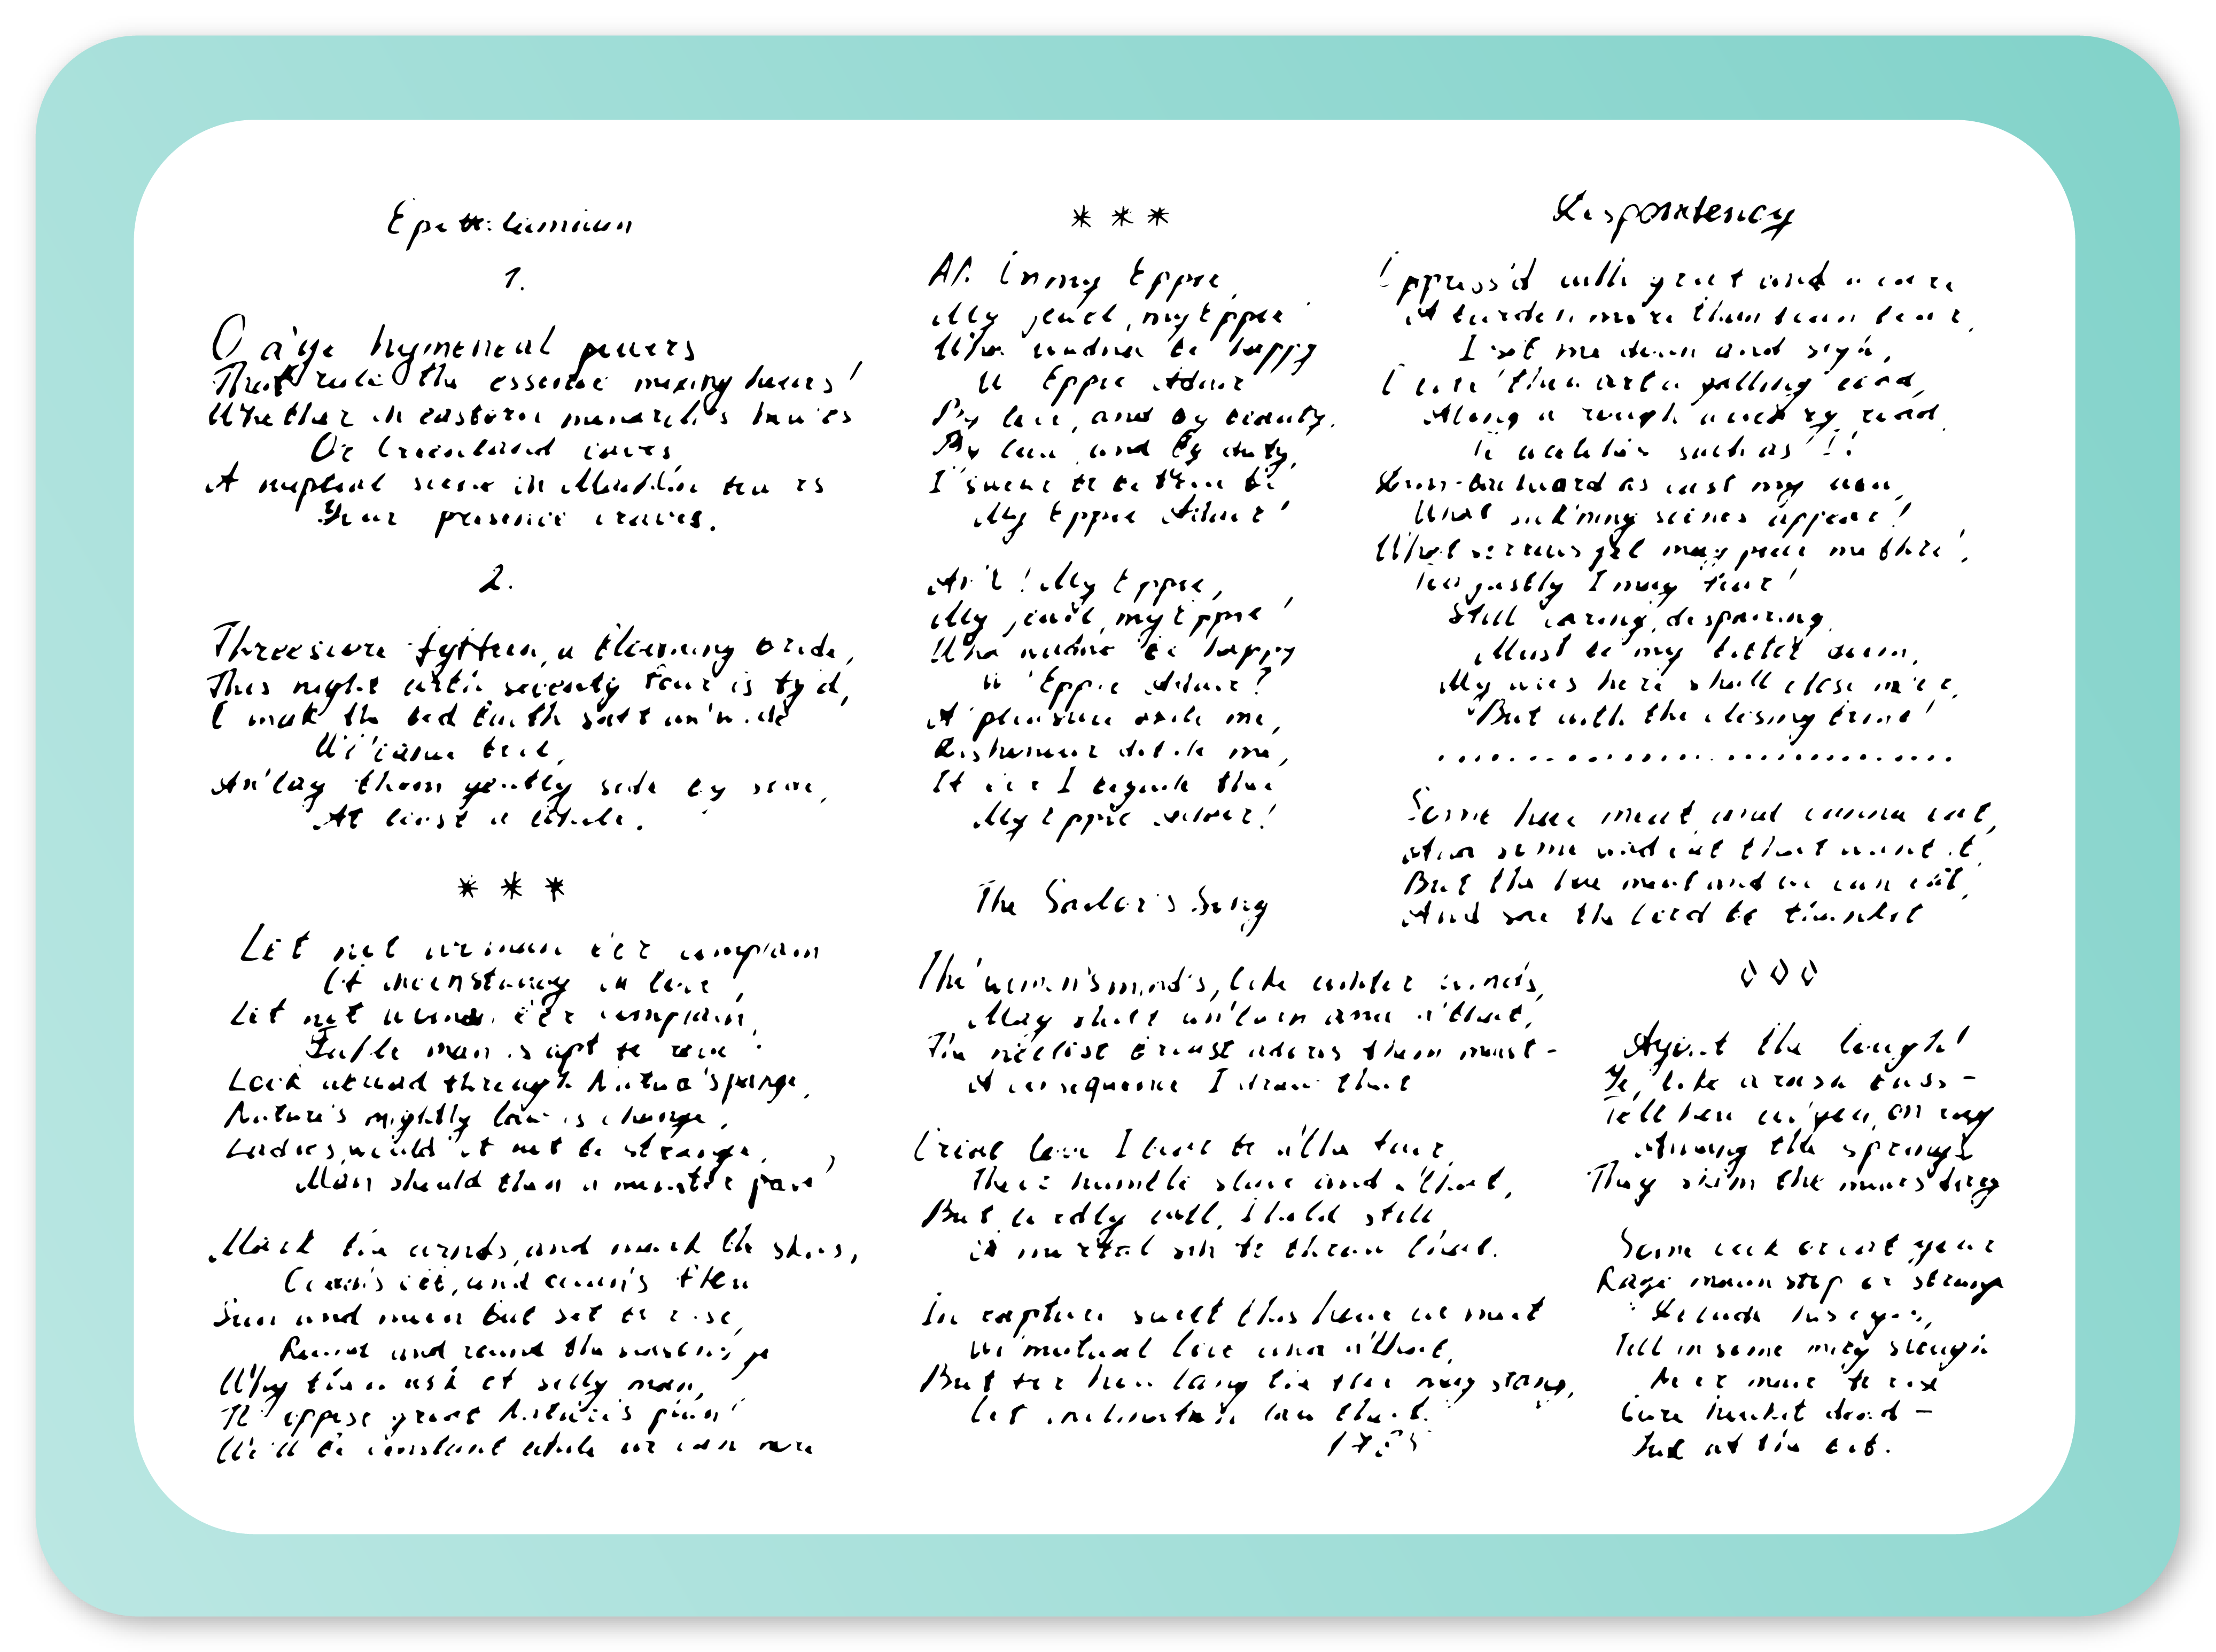 Epithalamium
1.
O a' ye hymeneal powers
That rule the essence mixing hours!
Whether in eastern monarch's bow'rs
Or Greenland caves
A nuptial scene in Machlin tow'rs
Your presence craves.
2.
Threescore fyfteen, a blooming bride,
This night with seventy four is ty'd,
O mak the bed baith saft an' wide
Wi' canie toil,
An' lay them gently side by side,
At least a while.
* * *
Let not woman e'er complain
Of inconstancy in love,
Let not woman e'er complain,
Fickle man is apt to rove!
Look abroad through Nature's range,
Nature's mightly law is change,
Ladies, would it not be strange,
Man should then a monster prove?
Mark the winds, and mark the skies,
Ocean's ebb, and ocean's flow
Sun and moon but set to rise,
Round and round the seasons go
Why then ask of silly man,
To oppose great Nature's plan?
We'll be constant while we can more
* * *
An O my Eppie,
My jewel, my Eppie!
Wha wadna be happy
Wi' Eppie Adair
By love, and by beauty,
By law, and by duty,
I swear to be true to
My Eppie Adair!
An' O! My Eppie,
My jewel, my Eppie!
Wha wadna be happy
Wi' Eppie Adair?
A' pleasure exile me,
Dishonour defile me,
If e'er I beguile thee
My Eppie Adair!
The Sailor's Song
The women's minds, like winter winds,
May shift an' turn and a' that,
The noblest breast adores them maist -
A consequence I draw that
Great love I bear to a' the fair,
Their humble slave and a' that,
But lordly will, I hold it still
A mortal sin to thraw that.
In rapture sweet this hour we meet
Wi' mutual love and a' that,
But for how lang the flee may stang,
Let inclination law that.
1785
Despontency
Oppress'd with grief and care
A burden more than I can bear,
I set me down and sigh,
O life! thou art a galling load,
Along a rough a weary road,
To wretches such as I!
Dim-backward as I cast my view,
What sick'ning scenes appear!
What sorrows yet may pierce me thro',
Too justly I may fear!
Still caring, despairing,
Must be my bitter doom,
My woes here shall close ne'er,
But with the closing tomb!
. . . . . . . . . . . . . . . . . . . .
Some hae meat and canna eat,
And some wad eat that want it,
But the hae meat and we can eat,
And sae the Lord be thanket
◊ ◊ ◊
Ayont the lough!
Ye, like a rash buss -
Amang the sprays
They skim the muirs
Some cock or cat your
Rage maun stop or strange
Delude his eyes,
Till in some miry slough
Ne'er mair to rise
Gure hunkit dead -